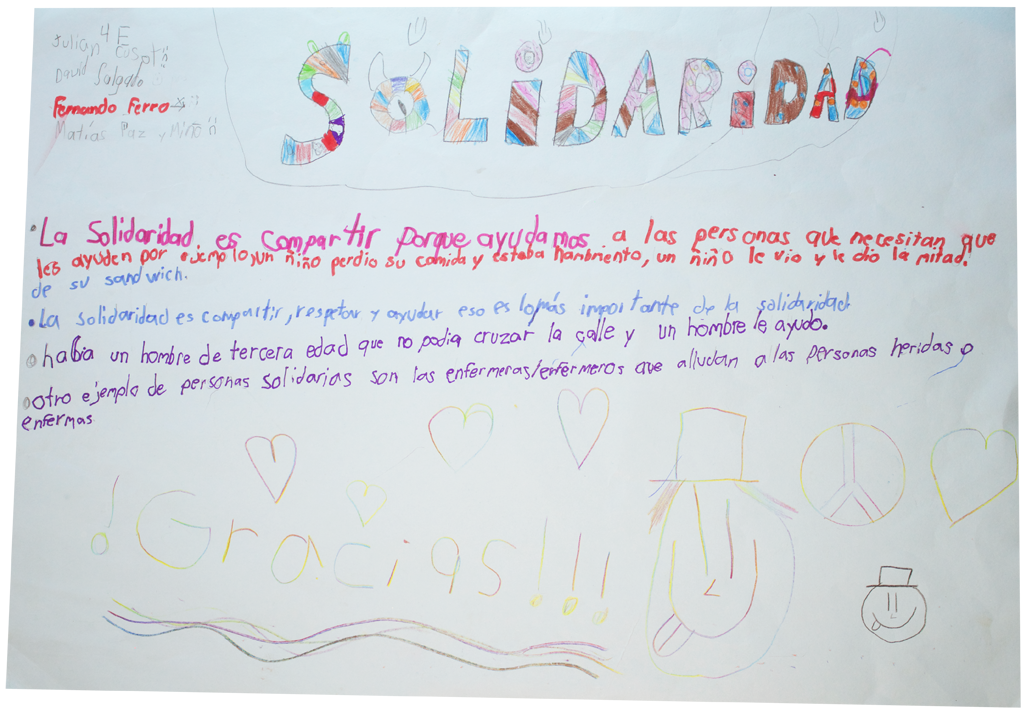 4 F
Julian
David Salgado
Fernando Ferro
Matías Paz y Miño
SOLiDARiDAD
La Solidaridad es compartir porque ayudamos a las personas que necesitan que
les ayuden por ejemplo, un niño perdio su comida y estaba hambriento, un niño le vio y le dio la mitad.
de su sandwich.
La solidaridad es compartir, respetar y ayudar eso es lo más importante de la solidaridad.
había un hombre de tercera edad que no podía cruzar la calle y un hombre le ayudo.
otro ejemplo de personas solidarias son las enfermeras/enfermeros que alludan a las personas heridas o
enfermas
¡Gracias!!!